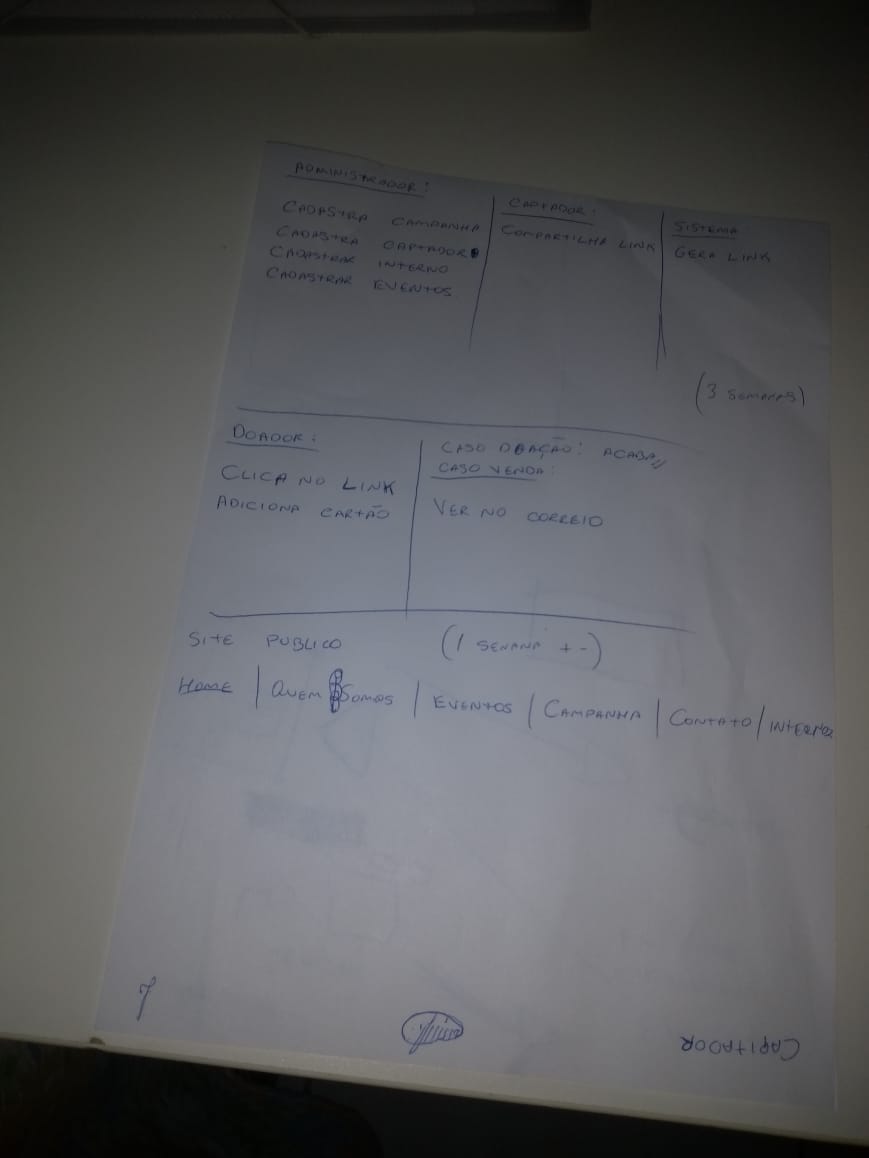 ADMINISTRADOR:
CADASTRA CAMPANHA
CADASTRA CAPTADOR
CADASTRAR INTERNO
CADASTRAR EVENTOS
CAPTADOR:
COMPARTILHA LINK
SISTEMA
GERA LINK
(3 SEMANAS)
DOADOR:
CLICA NO LINK
ADICIONA CARTÃO
CASO DOAÇÃO: ACABA
CASO VENDA:
VER NO CORREIO
SITE PUBLICO (1 SEMANA + -)
HOME | QUEM SOMOS | EVENTOS | CAMPANHA | CONTATO |
CAPITADOR